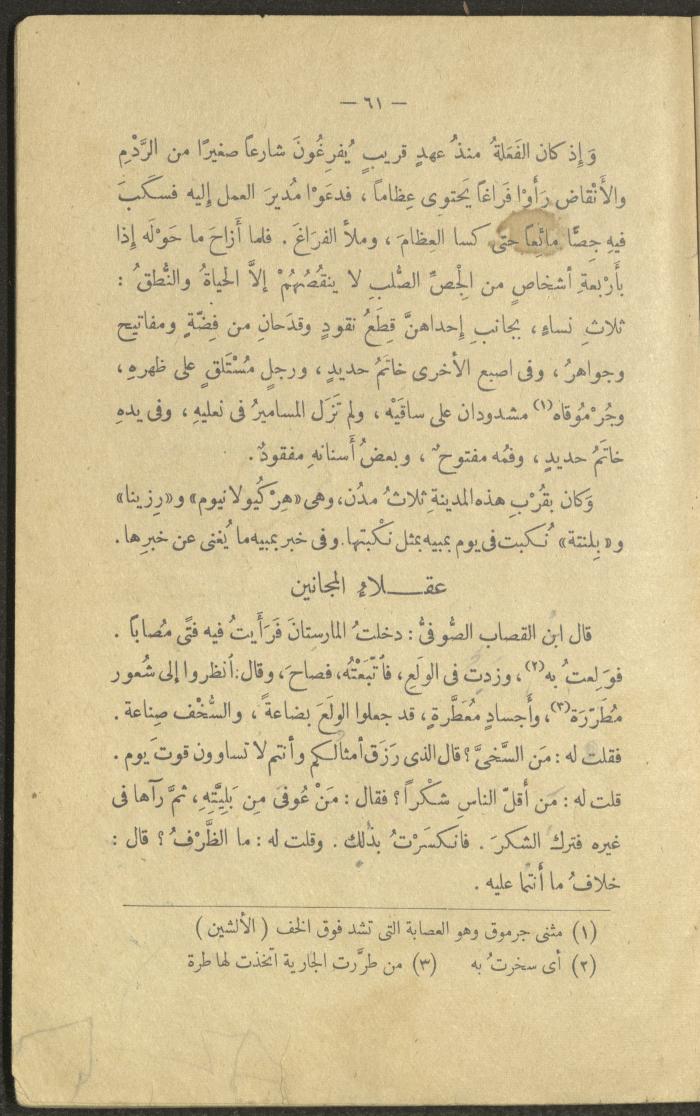 — ٦١ —
وَإِذ كان الفَعَلةُ منذُ عهدٍ قريبٍ يُفرِغُونَ شارعاً صغيرًا من الرَّدْمِ
والأَنْقاض رَأَوْا فَرَاغاً يَحتوِى عِظاماً ، فدعَوْا مُديرَ العمل إليه فسكَبَ
فيهِ جِصًّا مائِعاً حتى كسا العظامَ ، وملأ الفرَاغَ . فلما أَزاحَ ما حَوْلَه إذا
بأَرْبعةِ أشخاصٍ من الجْصِّ الصُّلبِ لا ينقُصُهُمْ إلاَّ الحياةُ والنُّطقُ :
ثلاثِ نساءٍ ، بجانبِ إحداهنَّ قِطَعُ نقودٍ وقدَحانِ من فِضّةٍ ومفاتيح
وجواهرُ ، وفى اصبع الأخرى خاتَمُ حديدٍ ، ورجلٍ مُسْتَلقٍ على ظهرهِ ،
وجُرْمُوقاه (١) مشدودان على ساقَيْه ، ولم تَزَل المساميرُ فى نعليهِ ، وفى يدهِ
خاتَمُ حديدٍ ، وفمُه مفتوحٌ ، وبعضُ أَسنانهِ مفقودٌ .
وَكان بقُرْبِ هذه المدينةِ ثلاثُ مدُن، وهى «هِرْكيولانيوم» و«رِزينا»
و«بِلنتة» نُكبت فى يوم بمبيه بمثل نكْبتها. وفى خبر بمبيه ما يُغنى عن خبرِها .
عقـــلاءُ المجانين
قال ابن القصاب الصُّوفىُّ : دخلتُ المارستانَ فَرَأَيتُ فيه فتًى مُصاباً .
فوَلِعتُ به (٢) ، وزدت فى الولَعِ ، فاتَّبَعْتُه، فصاحَ، وقال: أنظروا إلى شُعور
مُطَرَّرَة (٣)، وأَجسادٍ مُعَطَّرةٍ ، قد جعلوا الولَعَ بضاعةً ، والسُّخْف صِناعة .
فقلت له : مَن السَّخىُّ ؟ قال الذى رَزَق أمثالكم وأنتم لا تساوون قوتَ يوم .
قلت له : مَن أقلّ الناسِ شكْراً ؟ فقال : مَنْ عُوفىَ مِن بَلِيَّتِهِ ، ثمَّ رآها فى
غيره فترك الشكرَ . فانكسَرْتُ بذلك . وقلت له : ما الظَّرْفُ ؟ قال :
خلافُ ما أَنتما عليه .
(١) مثنى جرموق وهو العصابة التى تشد فوق الخف ( الألشين )
(٢) أى سخرتُ به (٣) من طرَّرت الجارية اتخذت لها طرة